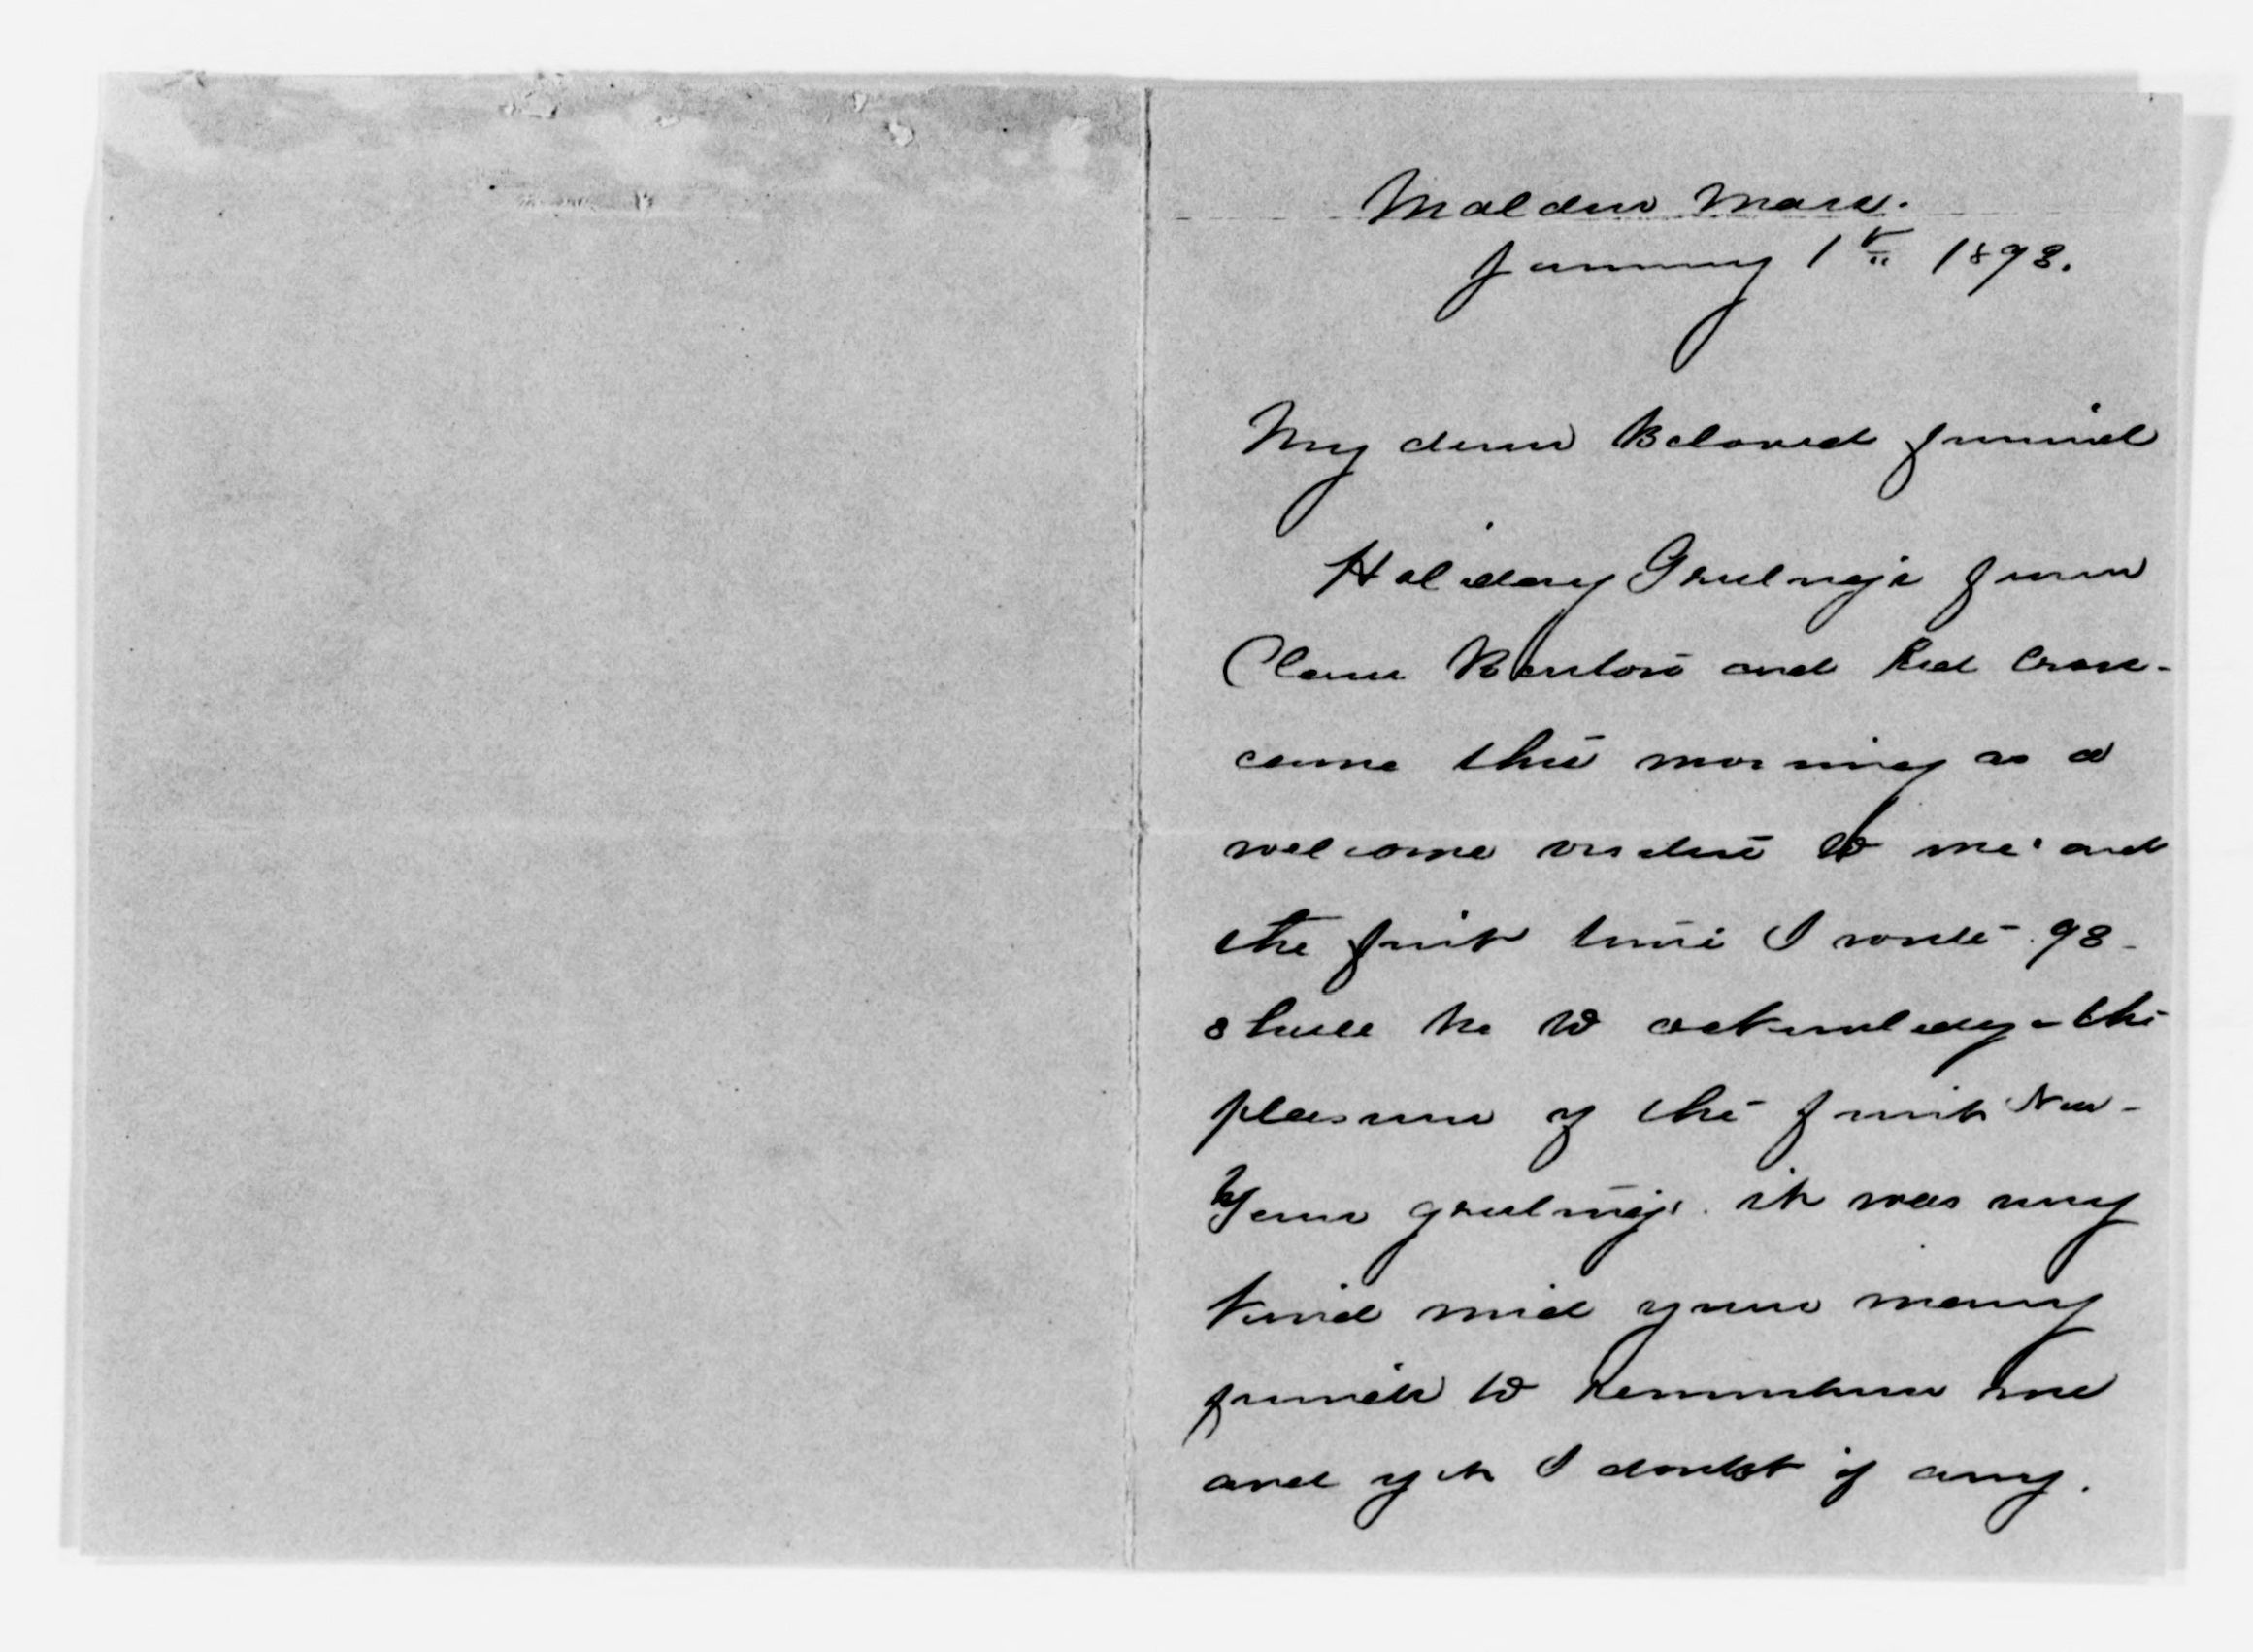 Malden Mass.
January 1st 1898.
My dear Beloved friend
Holiday Greetings from
Clara Barton and Red Cross -
came this morning as a
welcome to me and
the first time I write 98 -
shall be to acknowledge the
pleasure of the first New -
Years greetings. it was very
kind mid your many
friends to remember me
and yet I doubt if any.